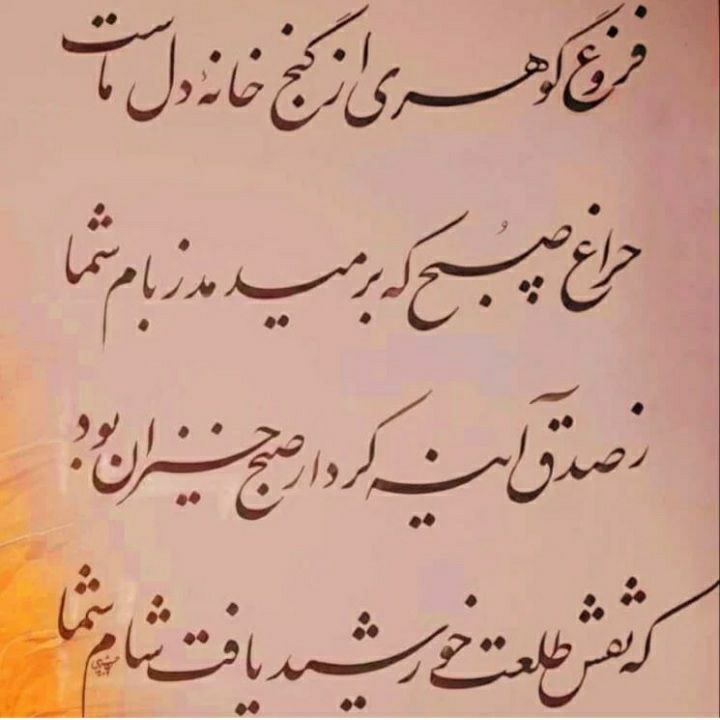 فروغ گوهری از گنج خانهٔ دل ماست
چراغ صبح که بر میدمد ز بام شما
ز صدق آینه کردار صبح خیزان بود
که نقش طلعت خورشید یافت شام شما